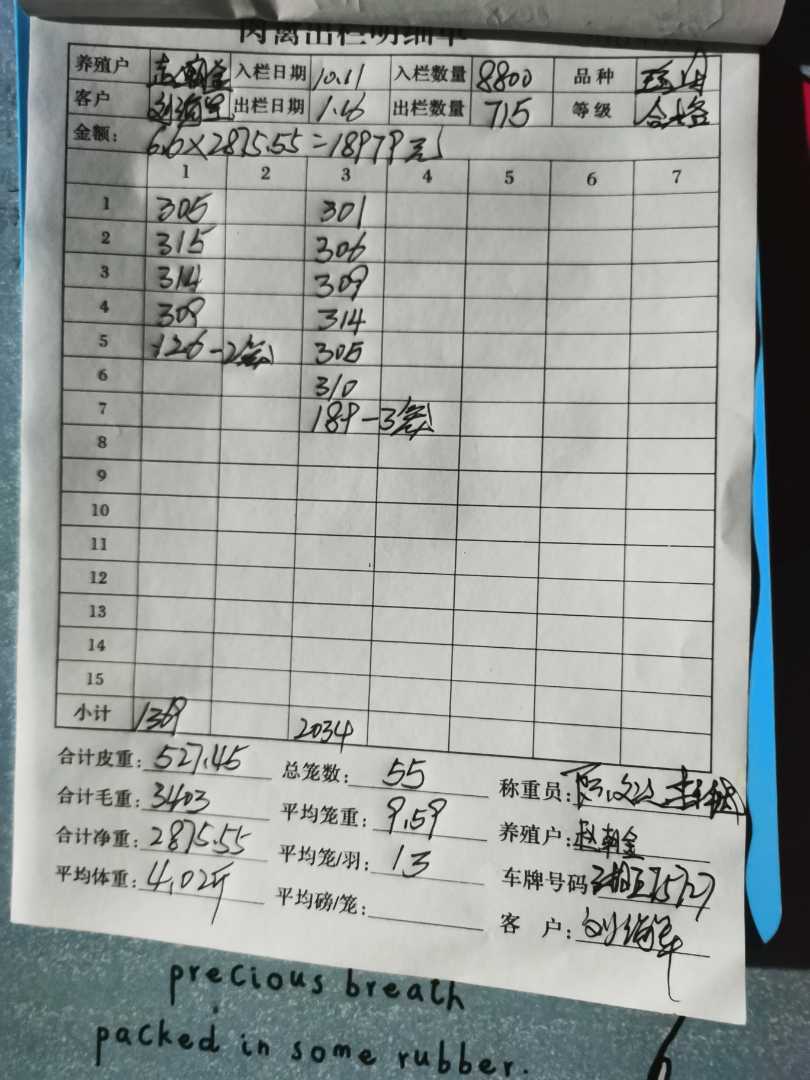 肉禽出栏明细单
养殖户 赵朝金 入栏日期 10.11 入栏数量 8800 品种
客户 出栏日期 1.16 出栏数量 715 等级 合格
金额: 6.6×2875.55=18979元
1 2 3 4 5 6 7
1 305 301
2 315 306
3 314 309
4 309 314
5 126-2笼 305
6 310
7 189-3笼
8
9
10
11
12
13
14
15
小计 1369 2034
合计皮重: 527.45 总笼数: 55 称重员:
合计毛重: 3403 平均笼重: 9.59 养殖户: 赵朝金
合计净重: 2875.55 平均笼/羽: 13 车牌号码
平均体重: 4.02斤 平均磅/笼: 客 户:
precious breath
packed in some rubber.